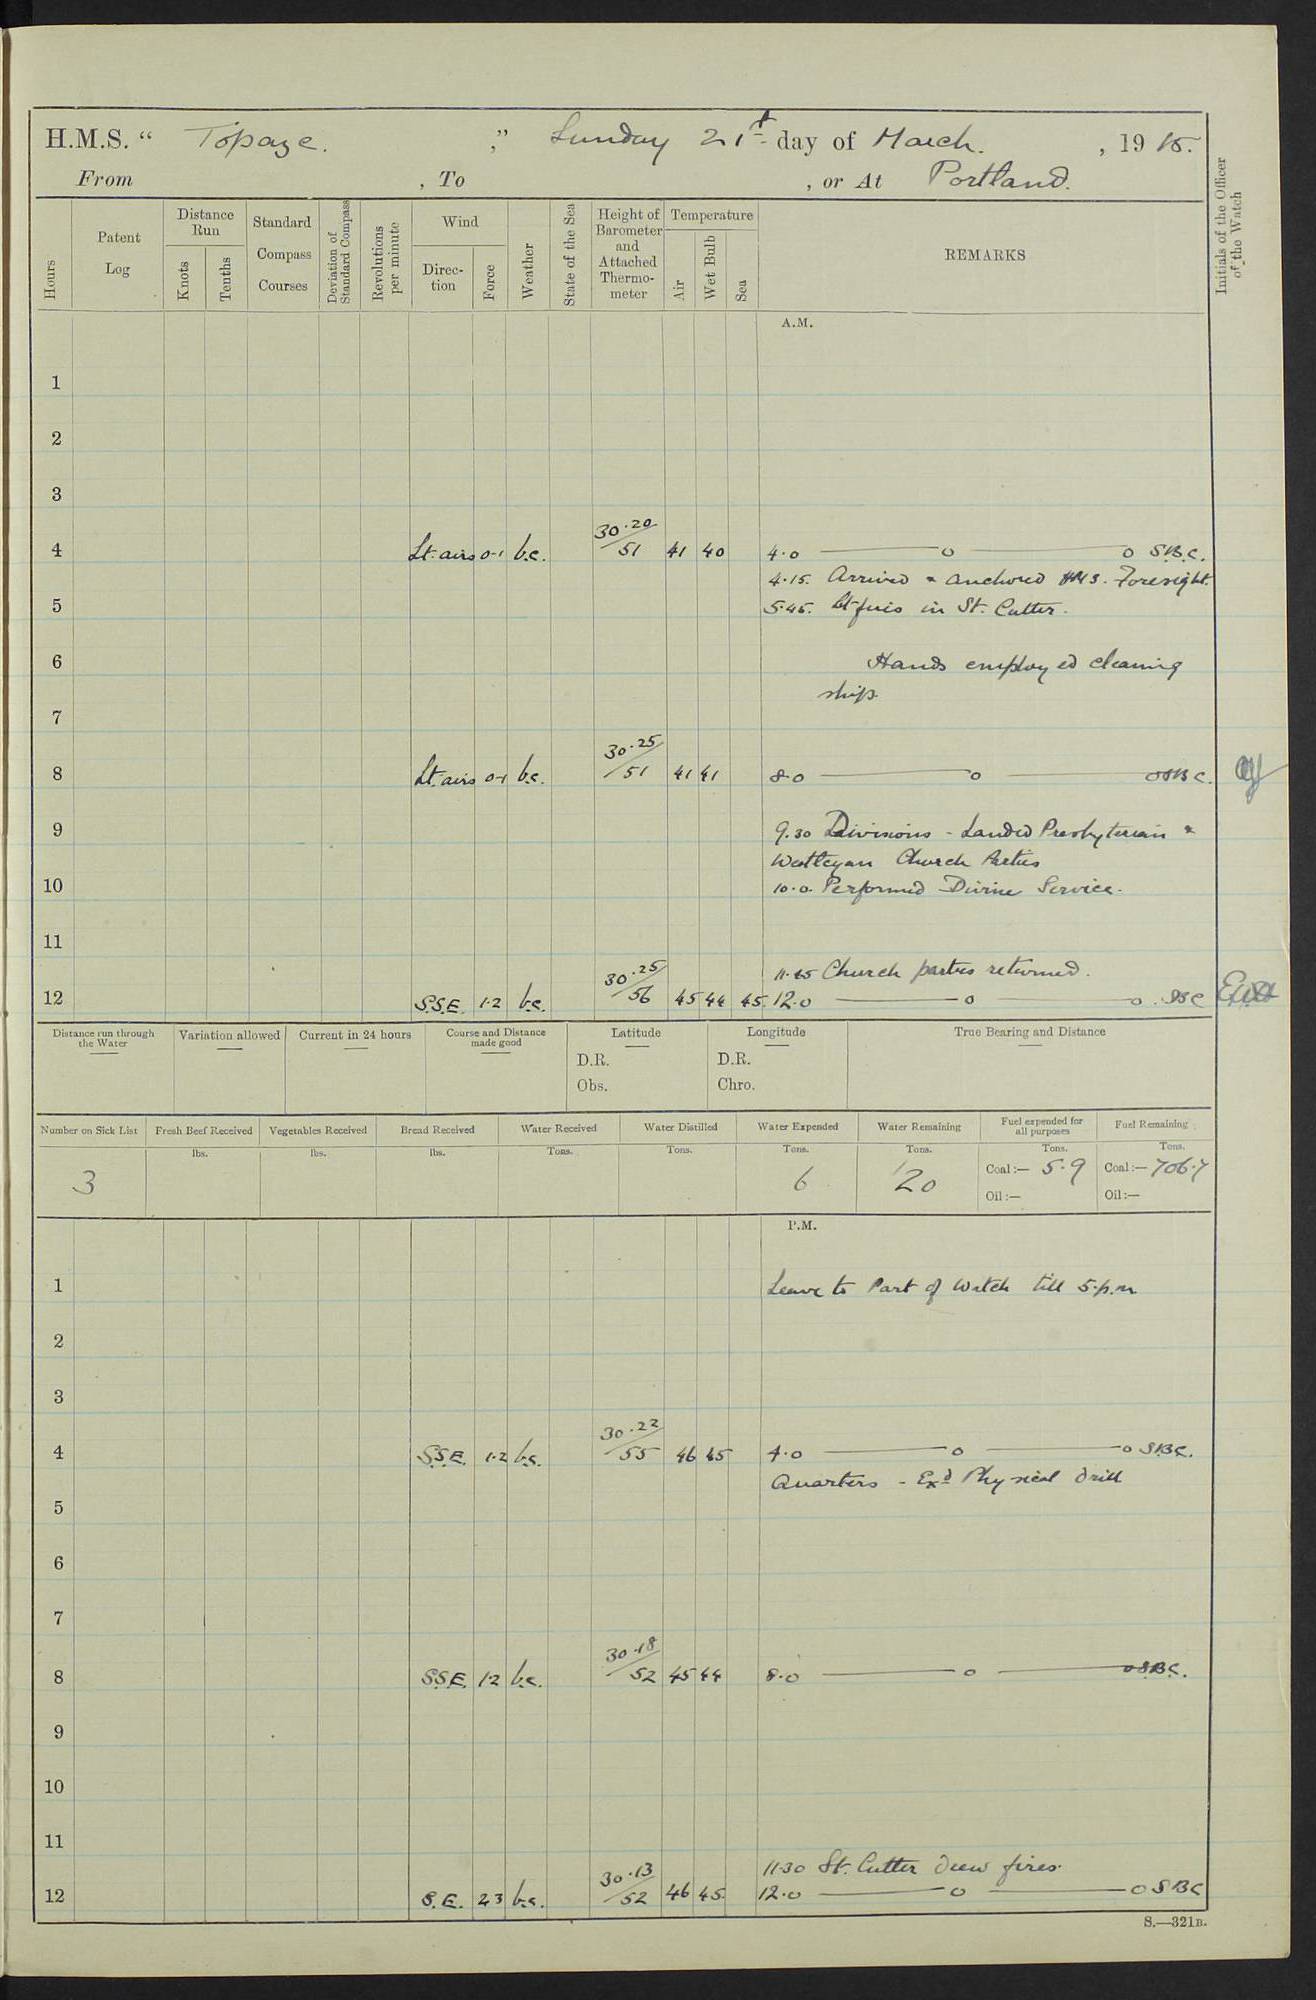 H.M.S. “ Topaze. ,” Sunday 21st day of March. , 1915.
From , To , or At Portland.
Hours
Patent Log
Distance Run
Knots
Tenths
Standard Compass Courses
Deviation of Standard Compass
Revolutions per minute
Wind
Direction
Force
Weather
State of the Sea
Height of Barometer and Attached Thermometer
Temperature
Air
Wet Bulb
Sea
REMARKS
Initials of the Officer of the Watch
A.M.
1
2
3
4 Lt. airs 0-1 b.c. 30.20/51 41 40 4.0 —— o —— o S.B.C.
4.15. Arrived & anchored HMS. Foresight.
5
5.45. Lt fires in St. Cutter.
6 Hands employed cleaning
ship
7
8 Lt. airs 0-1 b.c. 30.25/51 41 41 8.0 —— o —— o SBC.
9 9.30 Divisions - Landed Presbyterian &
Westleyan Church Parties
10 10.0. Performed Divine Service.
11
11.45 Church parties returned.
12 S.S.E. 1.2 b.c. 30.25/56 45 44 45. 12.0 —— o —— o. SBC
Distance run through the Water
Variation allowed
Current in 24 hours
Course and Distance made good
Latitude
D.R.
Obs.
Longitude
D.R.
Chro.
True Bearing and Distance
Number on Sick List
3
Fresh Beef Received
lbs.
Vegetables Received
lbs.
Bread Received
lbs.
Water Received
Tons.
Water Distilled
Tons.
Water Expended
Tons.
6
Water Remaining
Tons.
120
Fuel expended for all purposes
Tons.
Coal:— 5.9
Oil:—
Fuel Remaining
Tons.
Coal:— 706.7
Oil:—
P.M.
1 Leave to Part of Watch till 5.p.m
2
3
4 S.S.E. 1.2 b.c. 30.22/55 46 45 4.0 —— o —— o SBC.
Quarters - Exd Physical drill
5
6
7
8 S.S.E. 1.2 b.c. 30.18/52 45 44 8.0 —— o —— o S.B.C.
9
10
11
11.30 St. Cutter drew fires.
12 S.E. 2 3 b.c. 30.13/52 46 45. 12.0 —— o —— o SBC
S.—321B.